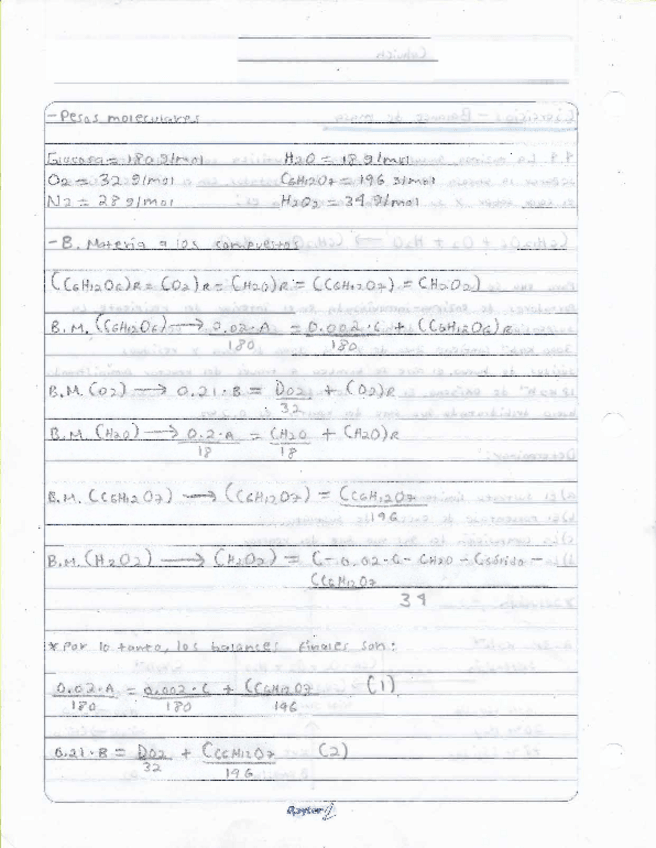 -Pesos moleculares
Glucosa = 180 g/mol H2O = 18 g/mol
O2 = 32 g/mol C6H12O7 = 196 g/mol
N2 = 28 g/mol H2O2 = 34 g/mol
-B. Materia a los compuestos
(C6H12O6)R = (O2)R = (H2O)R = (C6H12O7) = (H2O2)
B.M. (C6H12O6) → 0.02·A/180 = 0.002·C/180 + (C6H12O6)R
B.M. (O2) → 0.21·B = DO2/32 + (O2)R
B.M. (H2O) → 0.2·A/18 = CH2O/18 + (H2O)R
B.M. (C6H12O7) → (C6H12O7) = CC6H12O7/196
B.M. (H2O2) → (H2O2) = C-0.02·C-CH2O-Csólido-
CC6H12O7
34
* Por lo tanto, los balances finales son:
0.02·A/180 = 0.002·C/180 + CC6H12O7/196 (1)
0.21·B = DO2/32 + CC6H12O7/196 (2)